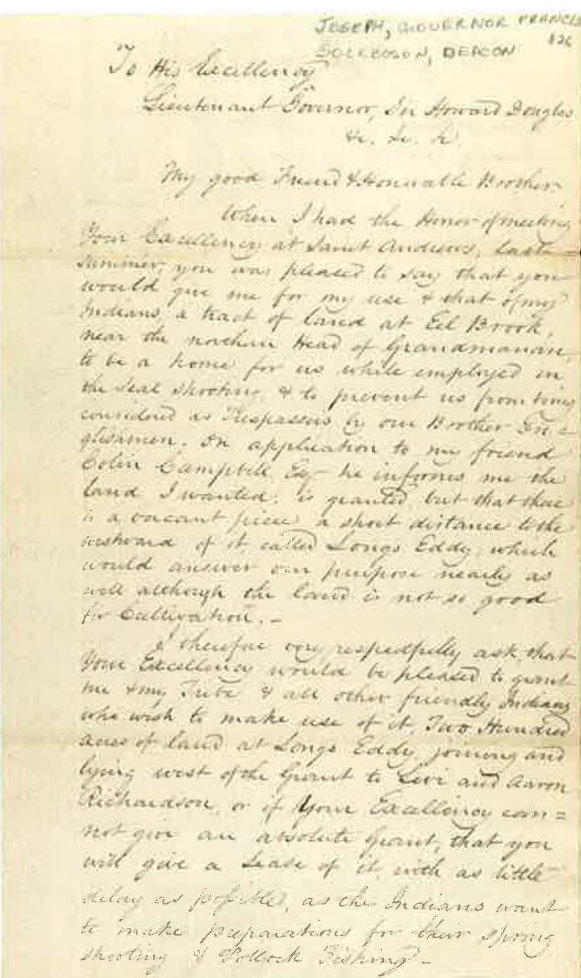 JOSEPH, GOVERNOR FRANCIS
126
SOCKBOSON, DEACON
To His Excellency
Lieutenant Governor, Sir Howard Douglas
&c. &c. &c.
My good Friend & Honorable Brother
When I had the Honor of meeting
Your Excellency at Saint Andrews, last
Summer, you was pleased to say that you
would give me for my use & that of my
Indians, a tract of land at Eel Brook,
near the northern Head of Grandmanan,
to be a home for us while employed in
the Seal Shooting, & to prevent us from being
considered as Trespassers by our Brother En=
glishmen. On application to my friend
Colin Campbell Esq he informs me the
land I wanted, is granted, but that there
is a vacant piece a short distance to the
westward of it, called Longs Eddy, which
would answer our purpose nearly as
well although the land is not so good
for Cultivation. –
I therefore very respectfully ask, that
Your Excellency would be pleased to grant
me & my Tribe & all other friendly Indians
who wish to make use of it, Two Hundred
acres of land at Longs Eddy, joining and
lying west of the Grant to Levi and Aaron
Richardson, or if Your Excellency can=
not give an absolute Grant, that you
will give a Lease of it, with as little
delay as possible, as the Indians want
to make preparations for their spring
shooting & Pollock Fishing –